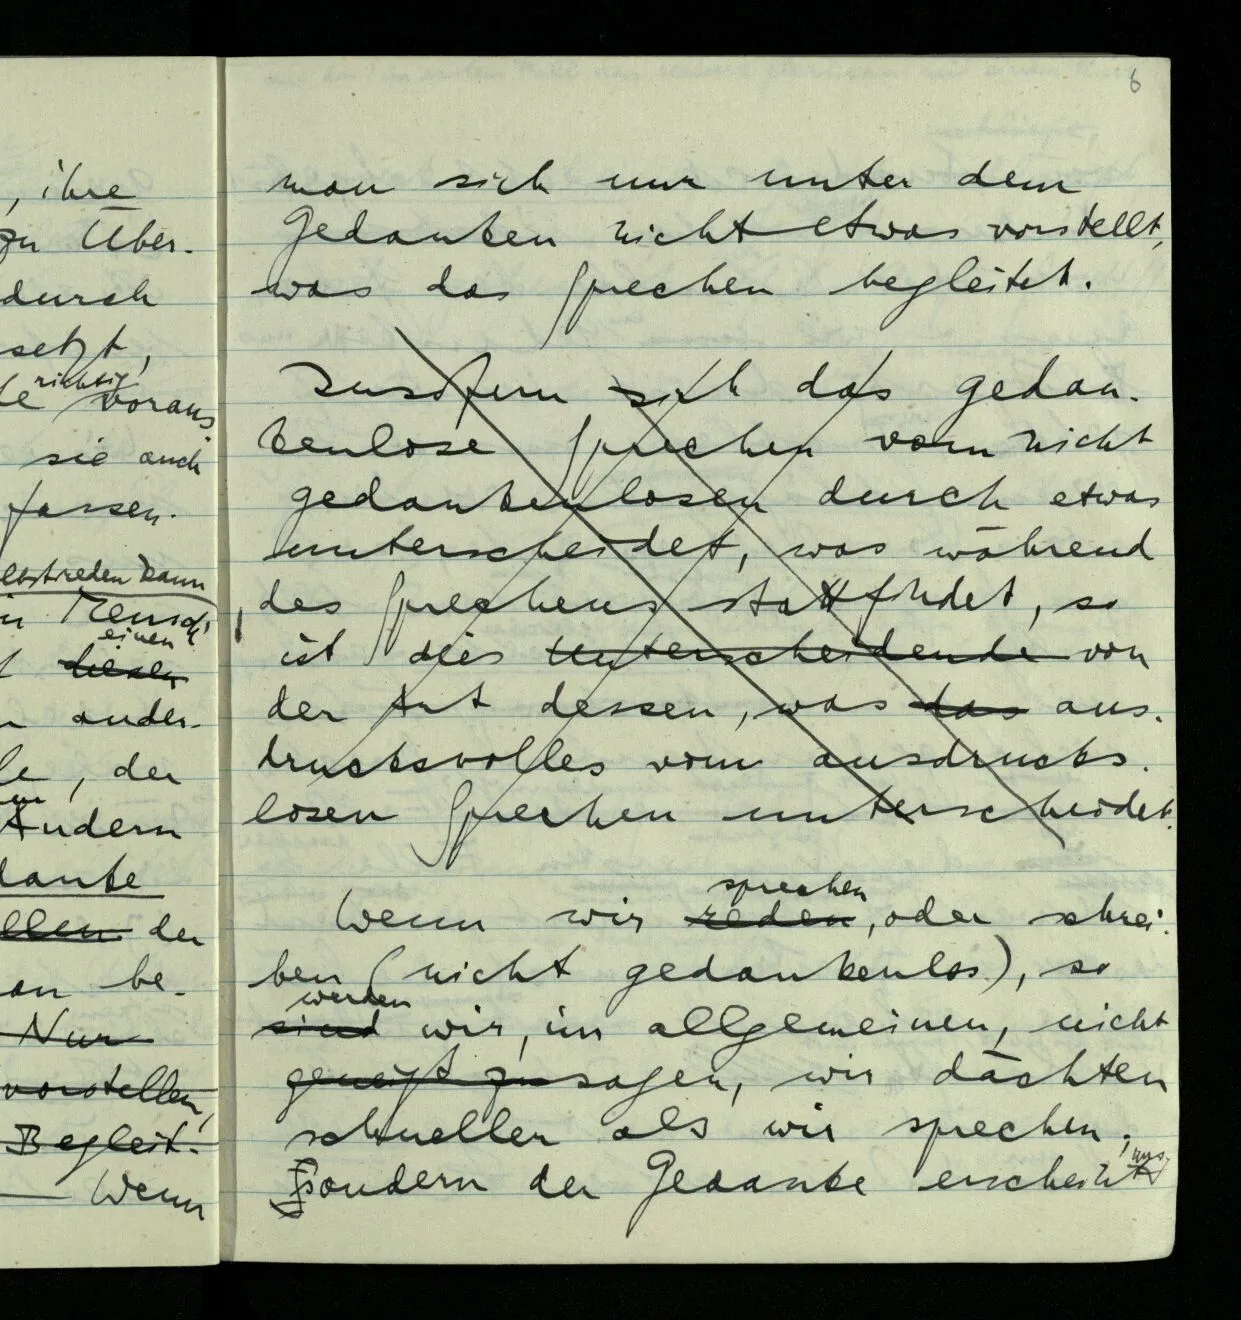 , ihre
zu Über-
durch
setzt,
richtig
voraus.
sie auch
fassen.
kann
Mensch
einen
diesen
ander-
, der
Andern
danke
der
an be-
Nur
vorstellen,
Begleit-
Wenn
6
man sich nur unter dem
Gedanken nicht etwas vorstellt,
was das Sprechen begleitet.
Insofern sich das gedan-
kenlose Sprechen vom nicht
gedankenlosen durch etwas
unterscheidet, was während
des Sprechens stattfindet, so
ist dies Unterscheidende von
der Art dessen, was das aus-
drucksvolles vom ausdrucks-
losen Sprechen unterscheidet.
sprechen
Wenn wir reden, oder schrei-
ben (nicht gedankenlos), so
werden
sind wir, im allgemeinen, nicht
geneigt zu sagen, wir dächten
schneller als wir sprechen;
uns
Sondern der Gedanke erscheint